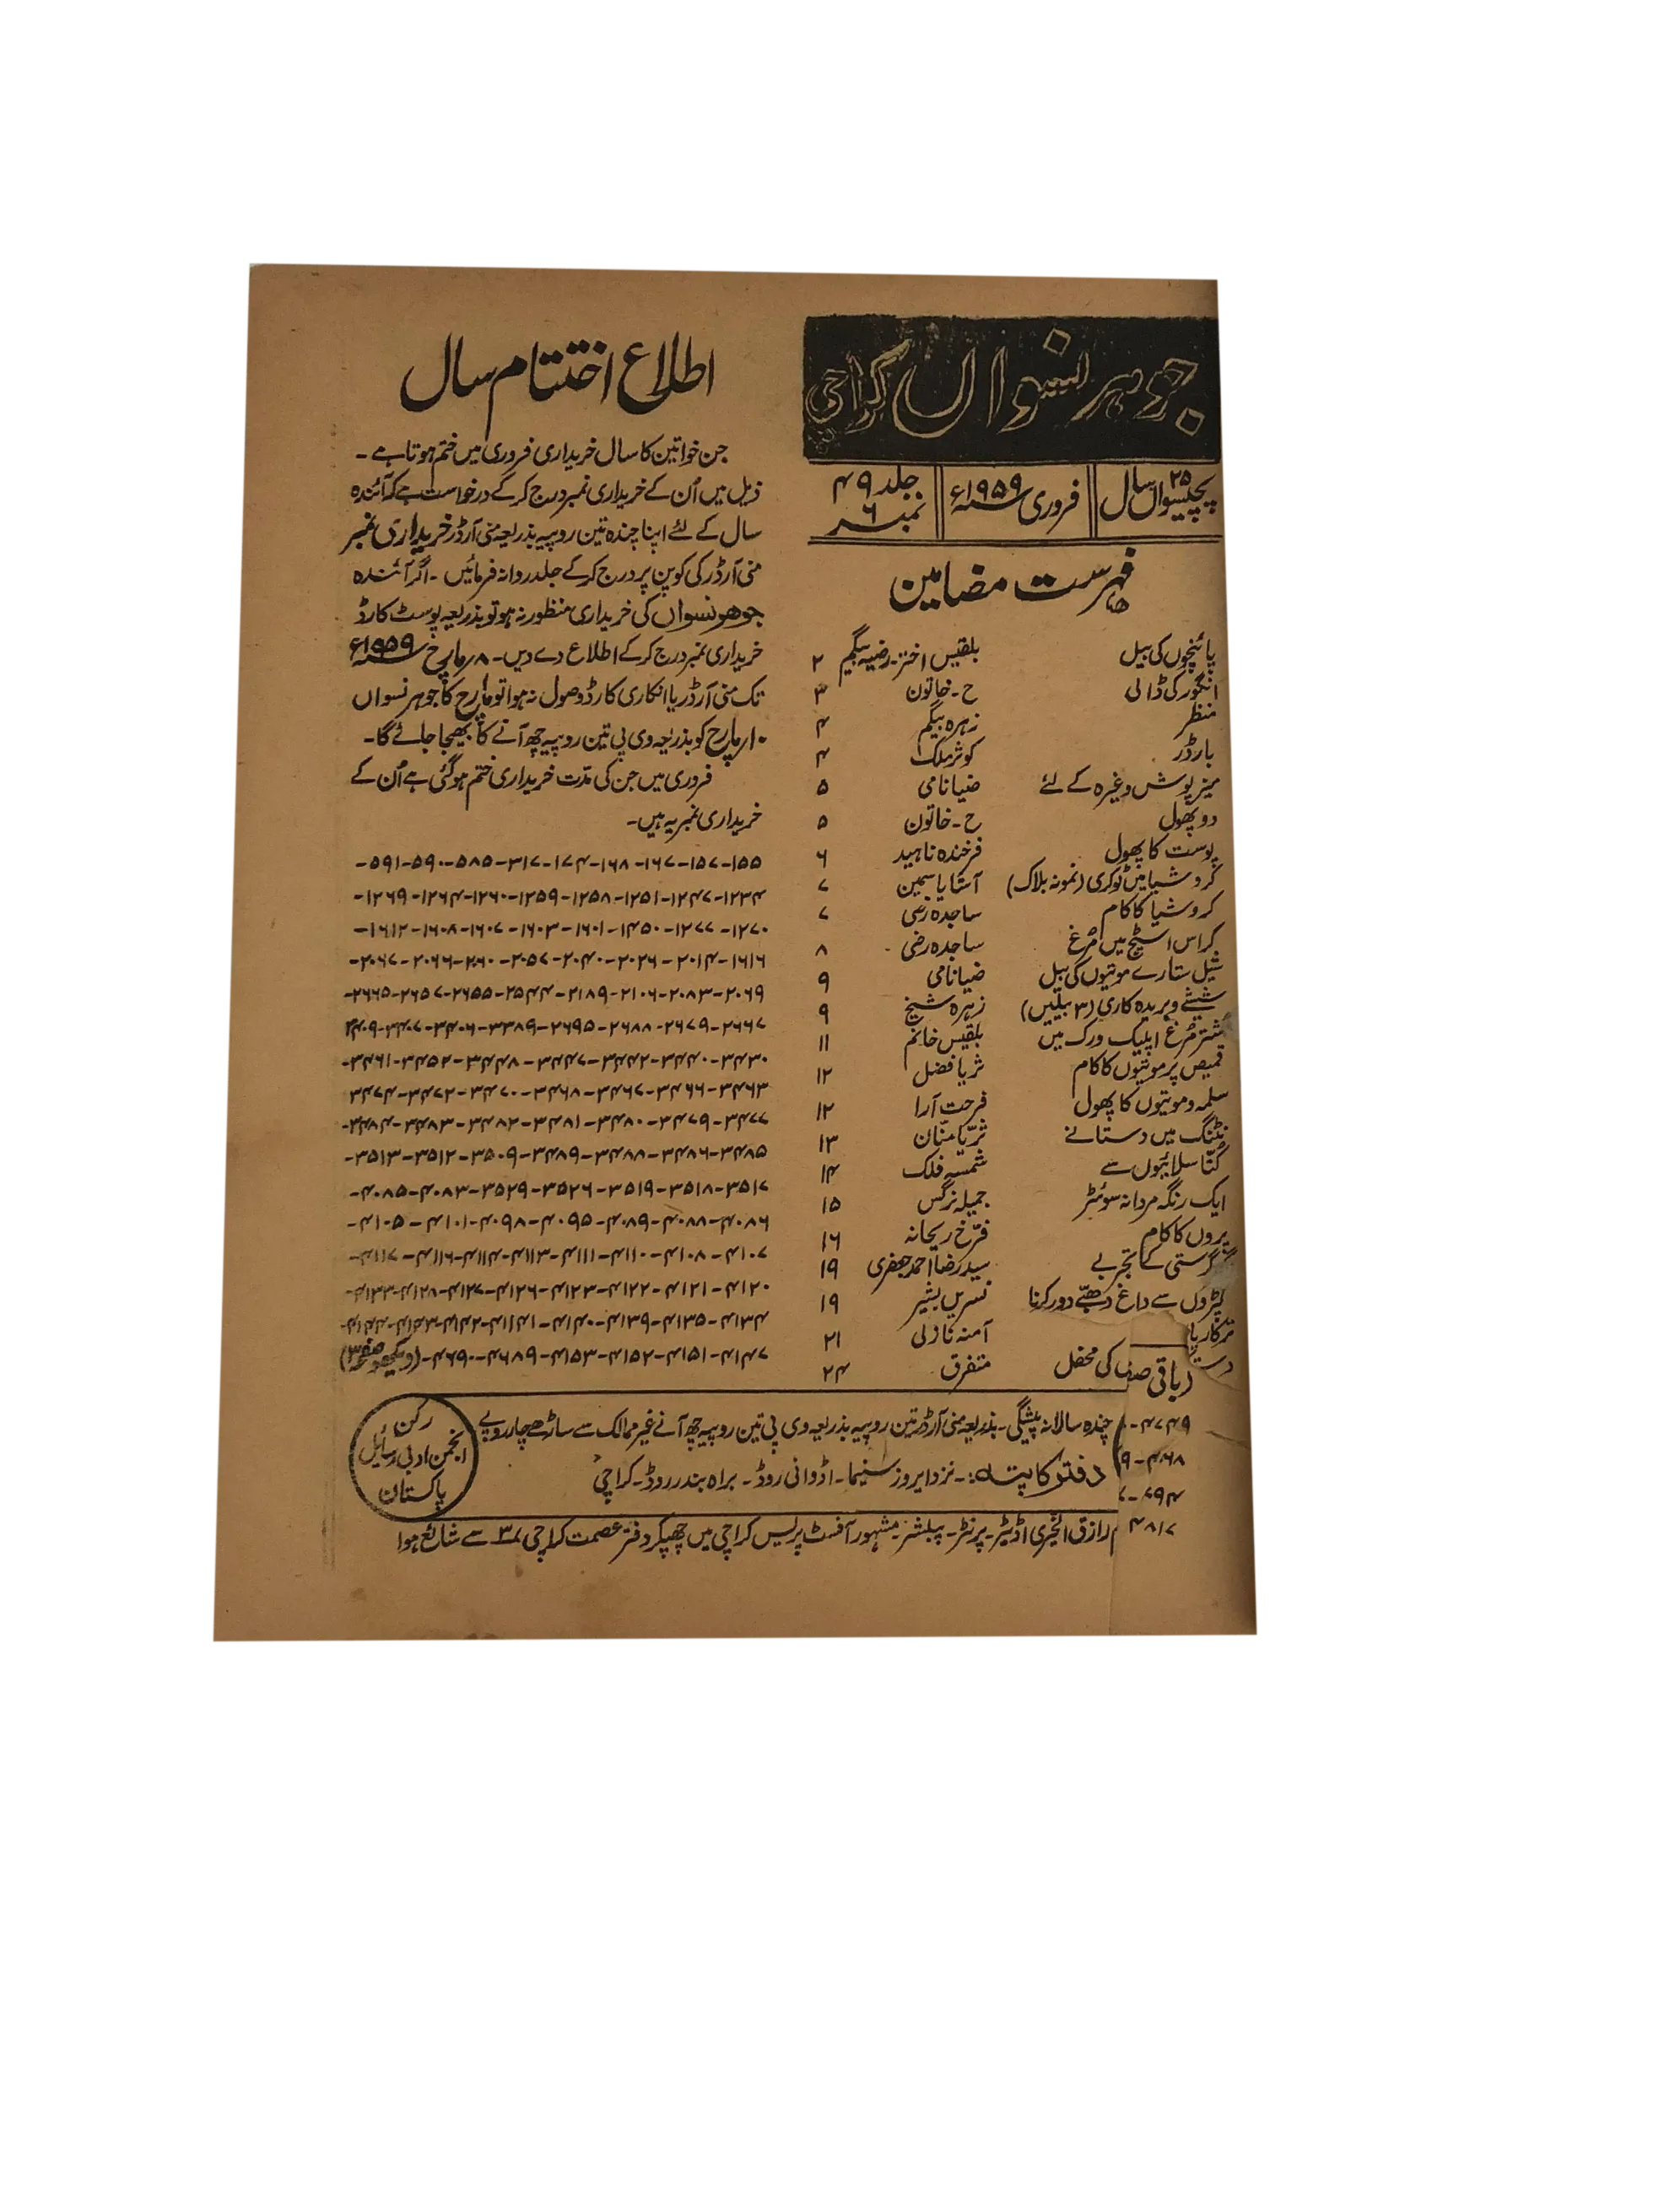 جوہر نسواں کراچی
۲۵ پچیسواں سال
فروری سنہ ۱۹۵۹ء
جلد ۴۹
نمبر ۶
فہرست مضامین
پائنچوں کی بیل بلقیس اختر۔ رضیہ بیگم ۲
انگور کی ڈالی ح۔ خاتون ۳
منظر زہرہ بیگم ۴
بارڈر کوثر ملک ۴
میز پوش وغیرہ کے لئے ضیا نامی ۵
دو پھول ح۔ خاتون ۵
پوست کا پھول فرخندہ ناہید ۶
کروشیا میں ٹوکری (نمونہ بلاک) آشا یاسمین ۷
کروشیا کا کام ساجدہ رضی ۷
کراس اسٹچ میں مرغ ساجدہ رضی ۸
شیل ستارے موتیوں کی بیل ضیا نامی ۹
شیشے و بریدہ کاری (۳ بیلیں) زہرہ شیخ ۹
شتر مرغ اپلیک ورک میں بلقیس خانم ۱۱
قمیص پر موتیوں کا کام ثریا فضل ۱۲
سلمہ و موتیوں کا پھول فرحت آرا ۱۲
نٹنگ میں دستانے ثریا منّان ۱۳
کُتّا سلائیوں سے شمسہ فلک ۱۴
ایک رنگہ مردانہ سوئٹر جمیلہ نرگس ۱۵
پروں کا کام فرّخ ریحانہ ۱۶
گرستی کے تجربے سید رضا احمد جعفری ۱۹
کپڑوں سے داغ دھبّے دور کرنا نسرین بشیر ۱۹
ترکاریا آمنہ نازلی ۲۱
کی محفل متفرق ۲۴
(باقی صف
اطلاع اختتام سال
جن خواتین کا سال خریداری فروری میں ختم ہوتا ہے۔
ذیل میں اُن کے خریداری نمبر درج کر کے درخواست ہے کہ آئندہ
سال کے لئے اپنا چندہ تین روپیہ بذریعہ منی آرڈر خریداری نمبر
منی آرڈر کی کوپن پر درج کر کے جلد روانہ فرمائیں۔ اگر آئندہ
جوہر نسواں کی خریداری منظور نہ ہو تو بذریعہ پوسٹ کارڈ
خریداری نمبر درج کر کے اطلاع دے دیں۔ ۸ر مارچ سنہ ۱۹۵۹ء
تک منی آرڈر یا انکاری کارڈ وصول نہ ہوا تو مارچ کا جوہر نسواں
۱۰ر مارچ کو بذریعہ وی پی تین روپیہ چھ آنے کا بھیجا جائے گا۔
فروری میں جن کی مدّت خریداری ختم ہو گئی ہے اُن کے
خریداری نمبر یہ ہیں۔
۱۵۵-۱۵۷-۱۶۷-۱۶۸-۱۷۴-۳۱۷-۵۸۵-۵۹۰-۵۹۱-
۱۲۳۴-۱۲۴۷-۱۲۵۱-۱۲۵۸-۱۲۵۹-۱۲۶۰-۱۲۶۴-۱۲۶۹-
۱۲۷۰-۱۲۷۷-۱۴۵۰-۱۶۰۱-۱۶۰۳-۱۶۰۷-۱۶۰۸-۱۶۱۲-
۱۶۱۶-۲۰۱۴-۲۰۲۶-۲۰۴۰-۲۰۵۷-۲۰۶۰-۲۰۶۶-۲۰۶۷-
۲۰۶۹-۲۰۸۳-۲۱۰۶-۲۱۸۹-۲۵۴۴-۲۶۵۵-۲۶۵۷-۲۶۶۵-
۲۶۶۷-۲۶۷۹-۲۶۸۸-۲۶۹۵-۳۳۷۹-۳۴۰۶-۳۴۰۷-۳۴۰۹
۳۴۳۰-۳۴۴۰-۳۴۴۲-۳۴۴۷-۳۴۴۷-۳۴۵۵-۳۴۶۱-
۳۴۶۳-۳۴۶۶-۳۴۶۷-۳۴۶۸-۳۴۷۰-۳۴۷۲-۳۴۷۴
۳۴۷۷-۳۴۷۹-۳۴۸۰-۳۴۸۱-۳۴۸۲-۳۴۸۳-۳۴۸۴-
۳۴۸۵-۳۴۸۶-۳۴۸۷-۳۴۸۹-۳۵۰۹-۳۵۱۲-۳۵۱۳-
۳۵۱۷-۳۵۱۸-۳۵۱۹-۳۵۲۶-۳۵۲۹-۴۰۸۳-۴۰۸۵-
۴۰۸۶-۴۰۸۷-۴۰۸۹-۴۰۹۵-۴۰۹۷-۴۱۰۱-۴۱۰۵-
۴۱۰۶-۴۱۰۷-۴۱۱۰-۴۱۱۱-۴۱۱۳-۴۱۱۴-۴۱۱۶-۴۱۱۷-
۴۱۲۰-۴۱۲۱-۴۱۲۲-۴۱۲۳-۴۱۲۶-۴۱۲۷-۴۱۲۸-۴۱۳۳-
۴۱۳۴-۴۱۳۵-۴۱۳۹-۴۱۴۰-۴۱۴۱-۴۱۴۲-۴۱۴۳-۴۱۴۴-
۴۱۴۷-۴۱۵۱-۴۱۵۲-۴۱۵۳-۴۶۷۹-۴۶۹۰-(دیکھو صفحہ ۳)
چندہ سالانہ پیشگی۔ بذریعہ منی آرڈر تین روپیہ بذریعہ وی پی تین روپیہ چھ آنے غیر ممالک سے ساڑھے چار روپے
دفتر کا پتہ:۔ نزد ایروز سنیما۔ اڈوانی روڈ۔ براہ بندر روڈ۔ کراچی
رکن
انجمن ادبی رسائل
پاکستان
رازق الخیری اڈیٹر۔ پرنٹر۔ پبلشر۔ مشہور آفسٹ پریس کراچی میں چھپکر دفتر عصمت کراچی ۳۷ سے شائع ہوا
۴۷۴۹-
۴۰۶۸-۹
۴۷۹۴-
۴۸۱۷